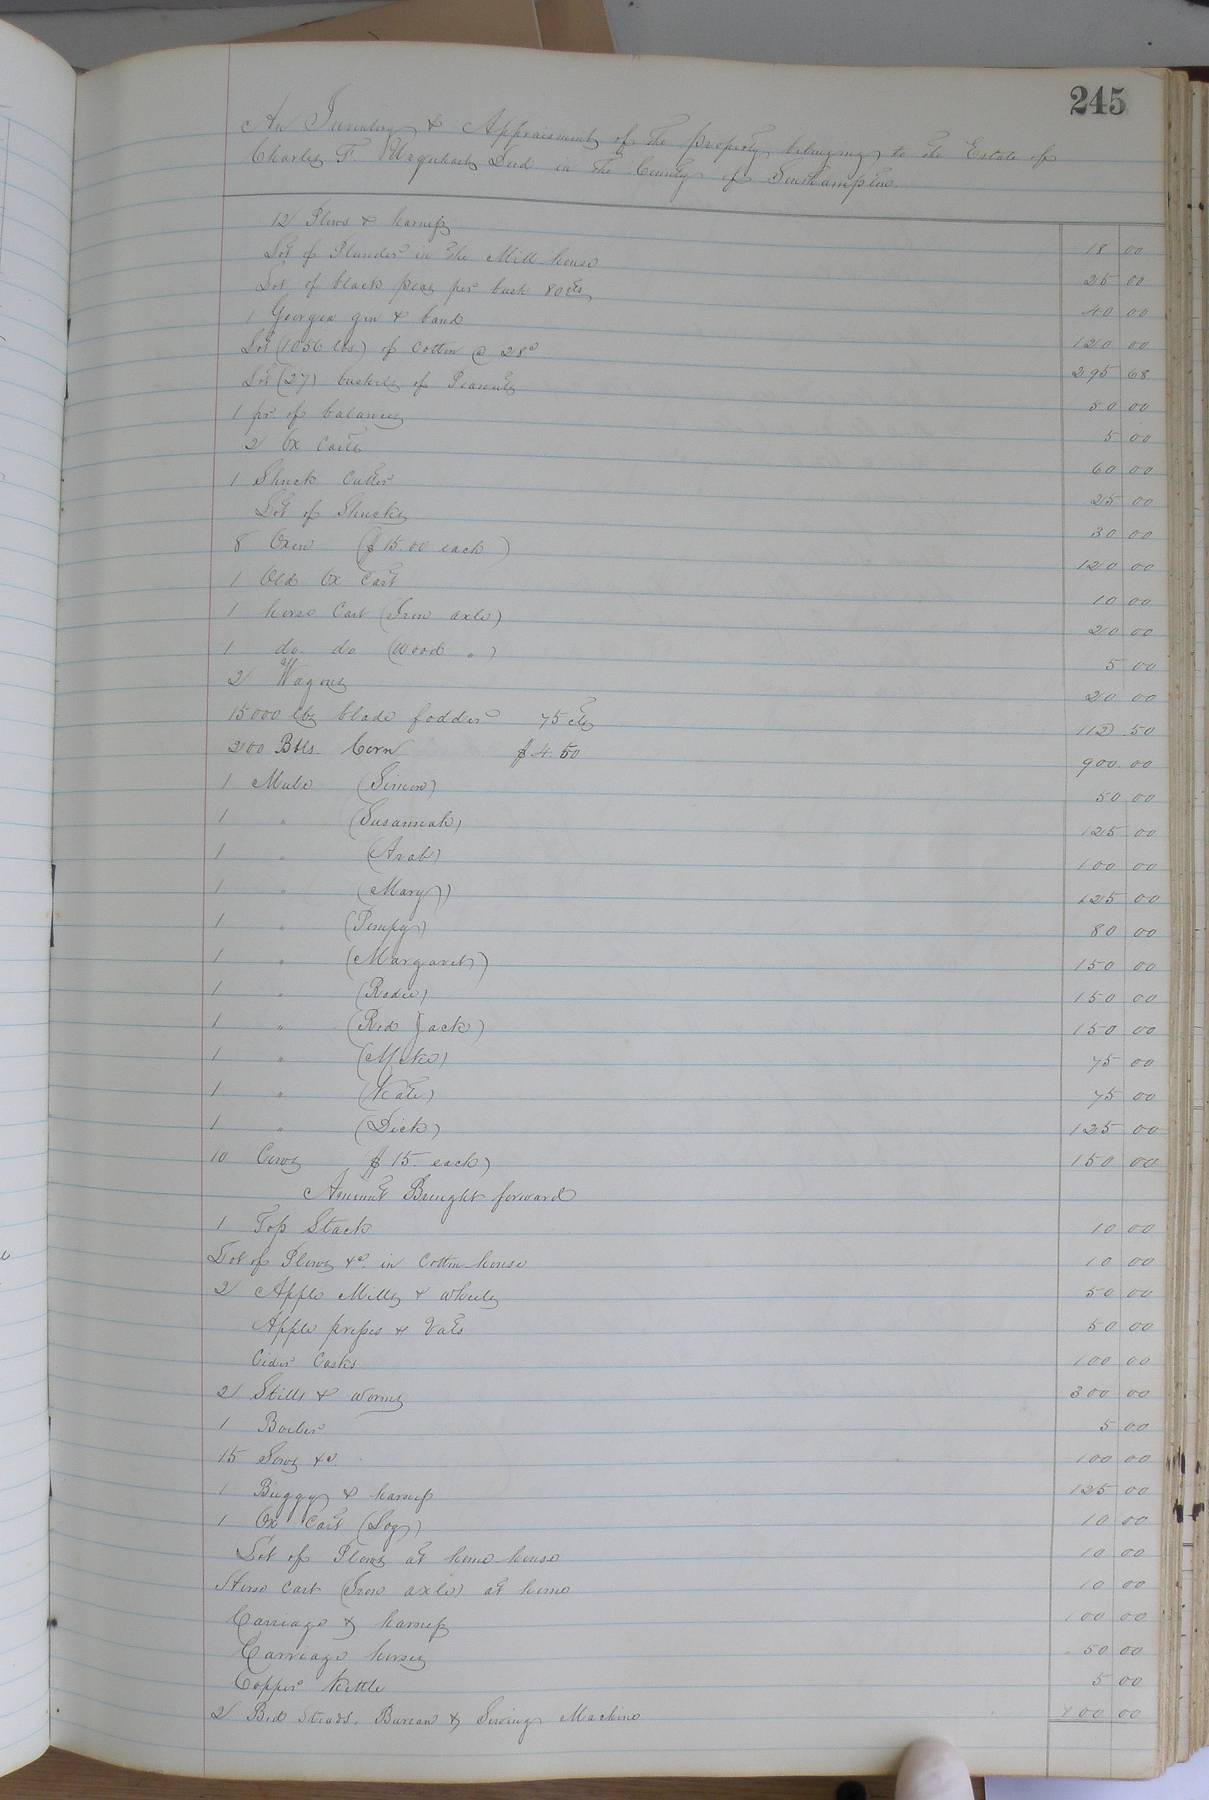 245
An Inventory & Appraisment of the property belonging to the Estate of
Charles F. Urquhart Decd in the County of Southampton.
12 Plows & harness 18 00
Lot of Plunder in the Mill house 25 00
Lot of black peas per bush 80 cts 40 00
1 Georgia gin & band 120 00
Lot (1056 lbs) of Cotton @ 28c 295 68
Lot (27) bushels of Peanuts 50 00
1 pr. of balances 5 00
2 Ox Carts 60 00
1 Shuck Cutter 25 00
Lot of Shucks 30 00
8 Oxen ($15.00 each) 120 00
1 Old Ox Cart 10 00
1 horse Cart (Iron axle) 20 00
1 do do (Wood ") 5 00
2 Wagons 20 00
15000 lbs blade fodder 75 cts 112 50
200 Bbls. Corn $4.50 900 00
1 Mule (Simon) 50 00
1 " (Susannah) 125 00
1 " (Arab) 100 00
1 " (Mary) 125 00
1 " (Pompy) 80 00
1 " (Margaret) 150 00
1 " (Rodie) 150 00
1 " (Red Jack) 150 00
1 " 75 00
1 " (Kate) 75 00
1 " (Dick) 125 00
10 Cows $15. each) 150 00
Amount Brought forward
1 Top Stack 10 00
Lot of Plows &c. in Cotton house 10 00
2 Apple Mills & wheels 50 00
Apple presses & Vats 50 00
Cider Casks 100 00
2 Stills & worms 300 00
1 Boiler 5 00
15 Sows &c. 100 00
1 Buggy & harness 125 00
1 Ox Cart (Log) 10 00
Lot of Plows at home house 10 00
Horse Cart (Iron axle) at home 10 00
Carriage & harness 100 00
Carriage horses 50 00
Copper Kettle 5 00
2 Bed Steads, Bureau & Sewing Machine 00 00